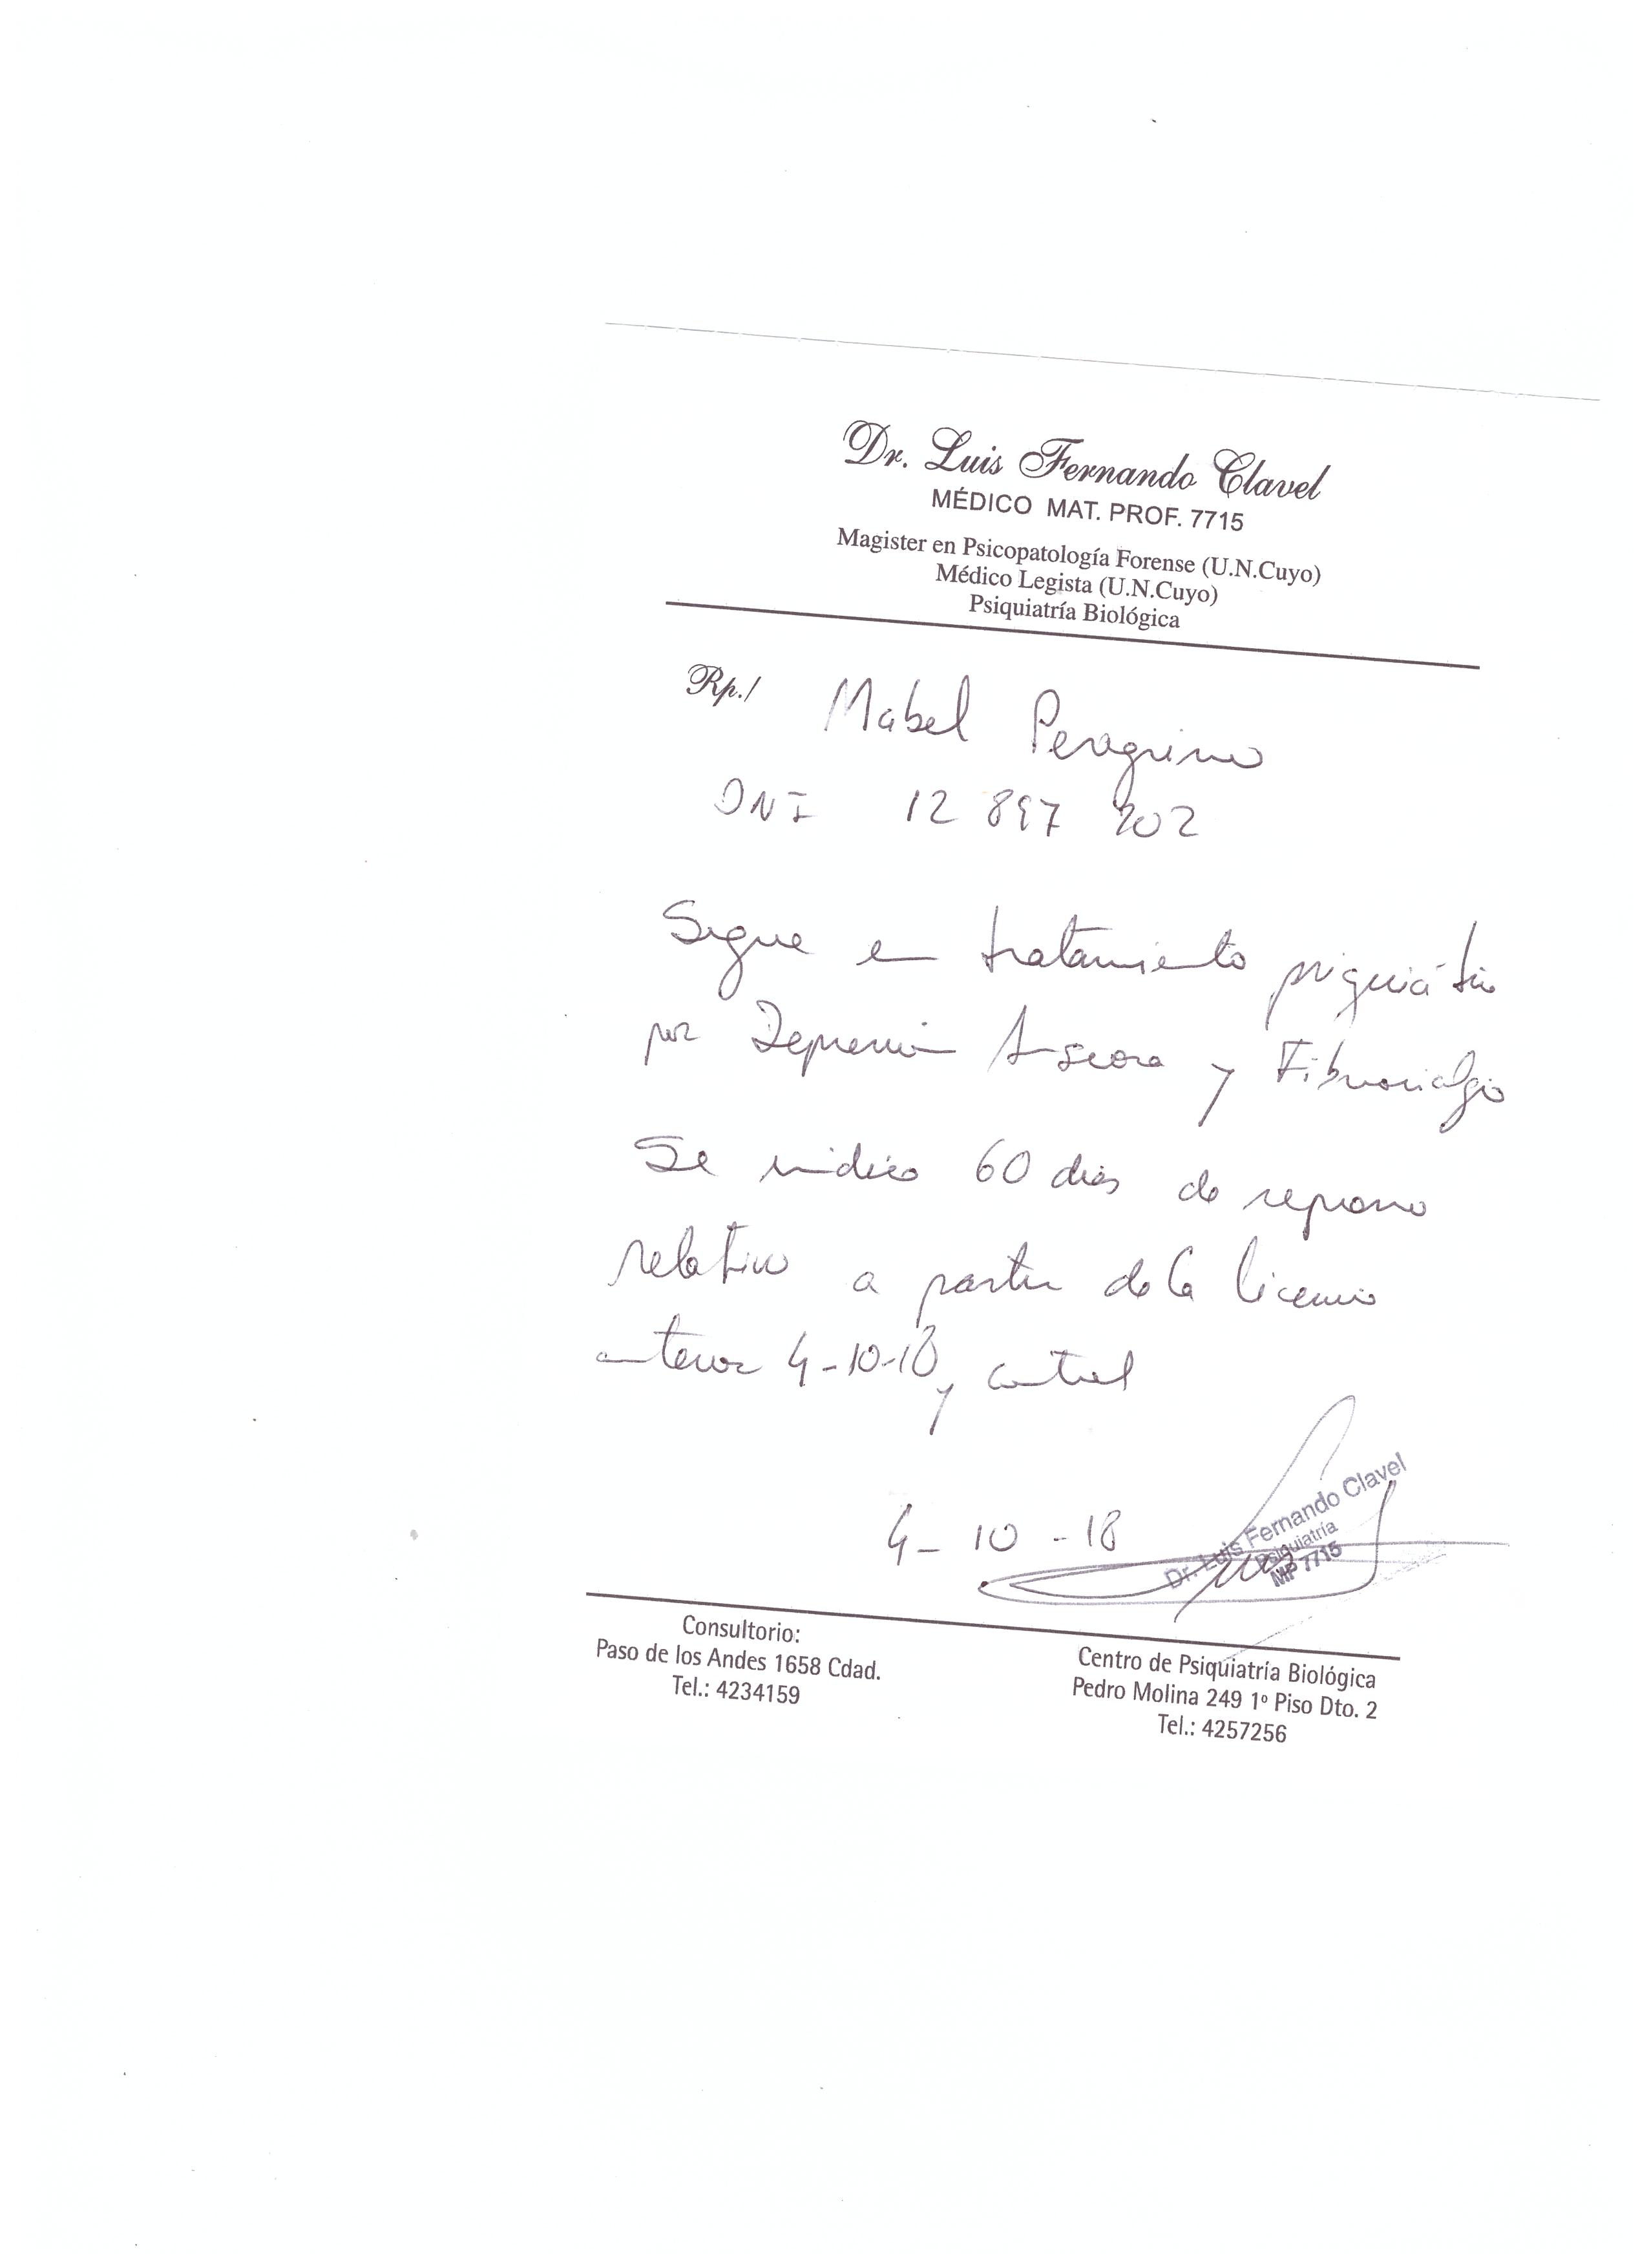 Dr. Luis Fernando Clavel
MÉDICO MAT. PROF. 7715
Magister en Psicopatología Forense (U.N.Cuyo)
Médico Legista (U.N.Cuyo)
Psiquiatría Biológica
Rp./ Mabel Peregrino
DNI 12 897 202
Sigue en tratamiento psiquiátrico
por Depresión Ansiosa y Fibromialgia
Se indica 60 dias de reposo
relativo a partir de la licencia
anterior 4-10-18 y control
4-10-18
Dr. Luis Fernando Clavel
Psiquiatría
MP 7715
Consultorio:
Paso de los Andes 1658 Cdad.
Tel.: 4234159
Centro de Psiquiatría Biológica
Pedro Molina 249 1º Piso Dto. 2
Tel.: 4257256